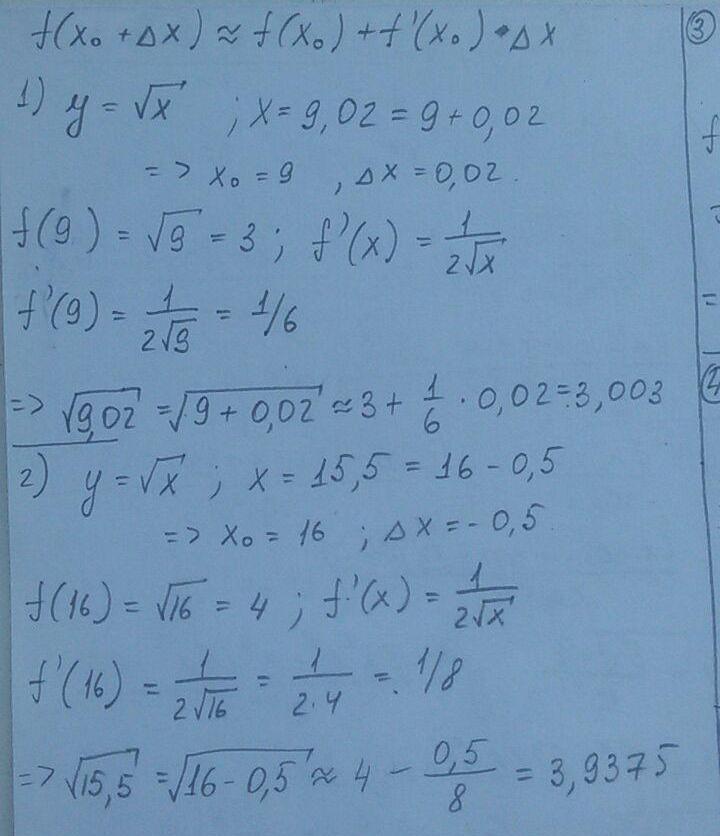 f(x₀ + Δx) ≈ f(x₀) + f'(x₀) • Δx
1) y = √x ; x = 9,02 = 9 + 0,02
=> x₀ = 9 , Δx = 0,02.
f(9) = √9 = 3 ; f'(x) = 1/(2√x)
f'(9) = 1/(2√9) = 1/6
=> √9,02 = √(9 + 0,02) ≈ 3 + 1/6 · 0,02 = 3,003
2) y = √x ; x = 15,5 = 16 - 0,5
=> x₀ = 16 ; Δx = - 0,5.
f(16) = √16 = 4 ; f'(x) = 1/(2√x)
f'(16) = 1/(2√16) = 1/(2·4) = 1/8
=> √15,5 = √(16 - 0,5) ≈ 4 - 0,5/8 = 3,9375
3
f
=